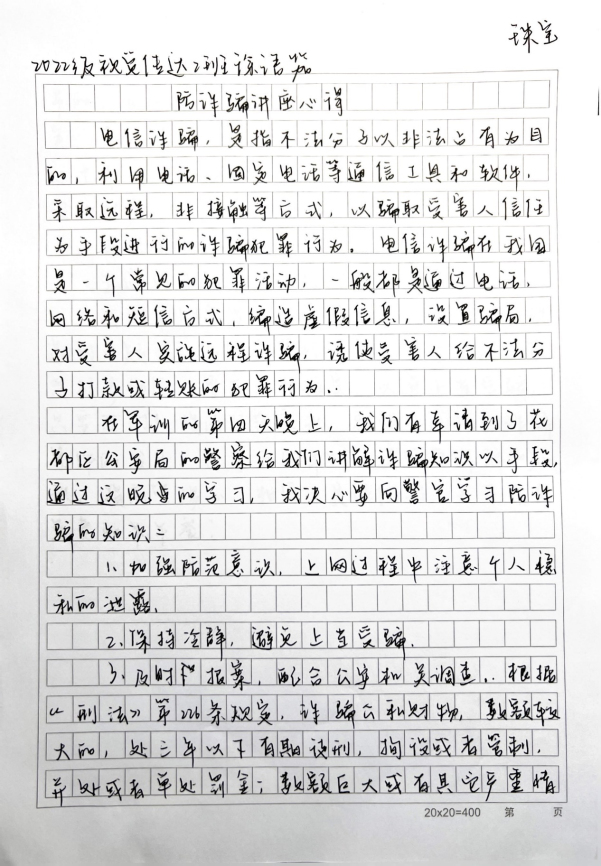 珠宝
2022级视觉传达2班徐语
防诈骗讲座心得
电信诈骗，是指不法分子以非法占有为目
的，利用电话、固定电话等通信工具和软件，
采取远程，非接触等方式，以骗取受害人信任
为手段进行的诈骗犯罪行为。电信诈骗在我国
是一个常见的犯罪活动，一般都是通过电话，
网络和短信方式，编造虚假信息，设置骗局，
对受害人实施远程诈骗，诱使受害人给不法分
子打款或转账的犯罪行为..
在军训的第四天晚上，我们有幸请到了花
都区公安局的警察给我们讲解诈骗知识以手段，
通过这晚的学习，我决心要向警官学习防诈
骗的知识：
1.加强防范意识，上网过程中注意个人稳
私的泄露.
2.保持冷静，避免上当受骗.
3.及时报案，配合公安机关调查..根据
《刑法》第226条规定，诈骗公私财物，数额较
大的，处三年以下有期徒刑，拘役或者管制，
并处或者单处罚金；数额巨大或有其它严重情
20x20=400 第 页